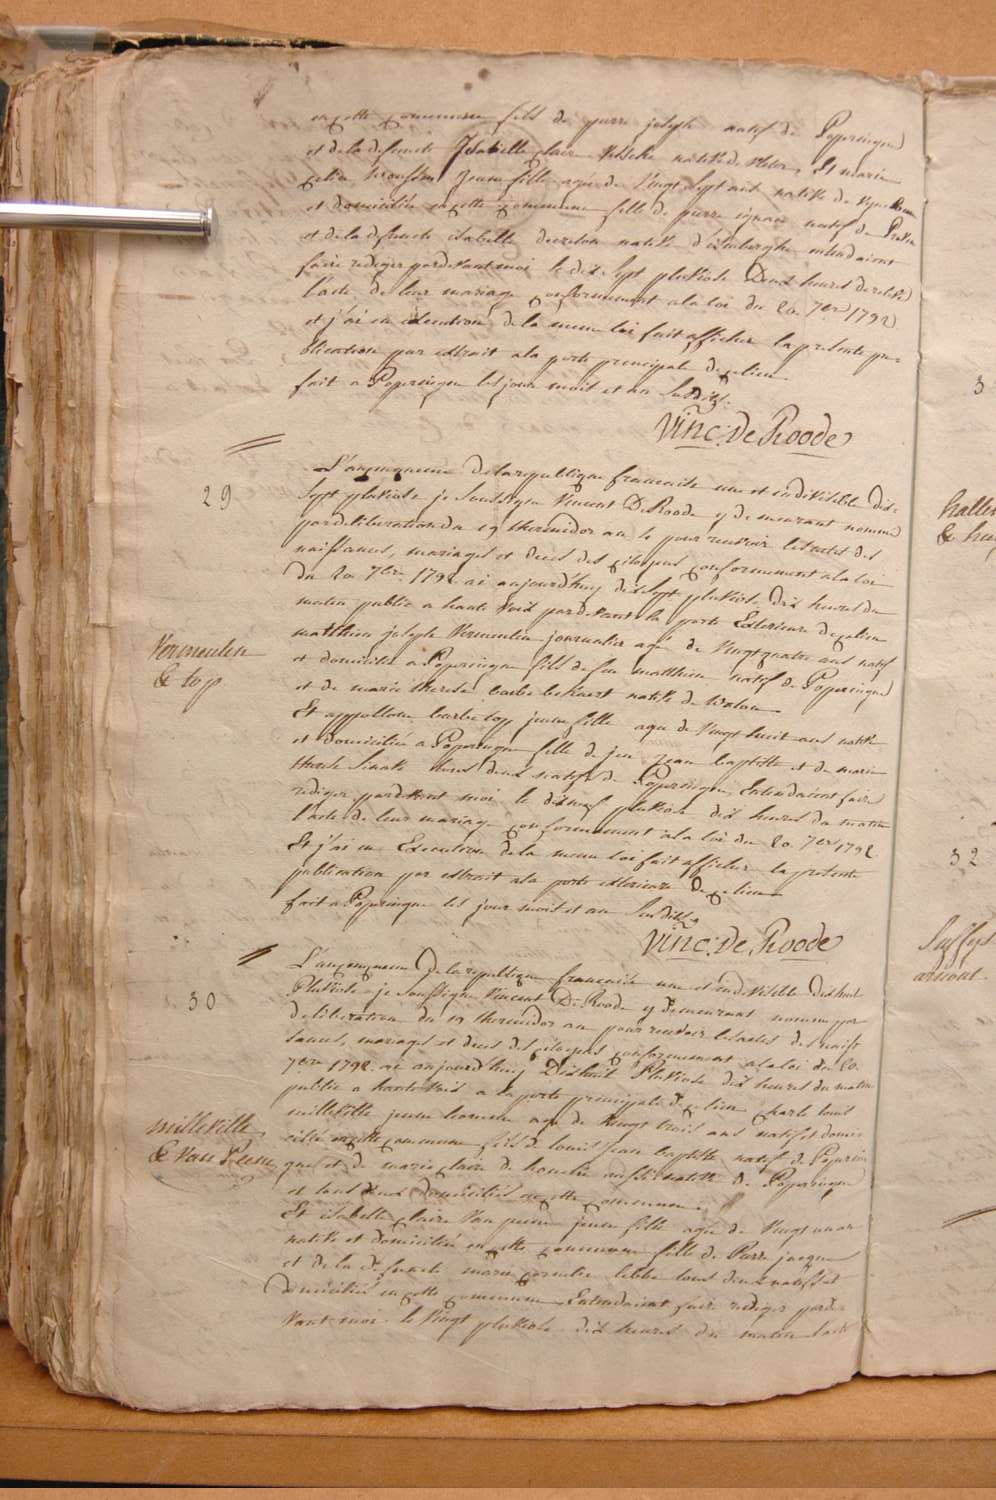 en cette commune fils de pierre joseph natif de Poperingue
et de la defuncte Isabelle claire natife de Et marie
jeune fille agée de vingt sept ans natife de
et domiciliée en cette commune fille de pierre ignace natif de
et de la defuncte isabelle natife d'elverdinghe entendaient
faire rediger pardevant moi le dix sept pluviose Deux heures de relevée
l'acte de leur mariage conformement a la loi du 20. 7bre 1792
et j'ai en execution de la meme loi fait afficher la presente pu-
blication par extrait a la porte principale de ce lieu
fait a Poperingue les jour mois et an susdits.
Vinc: De Roode
29
L'an cinquieme de la republique francaise une et indivisible dix-
sept pluviose je soussigné Vincent De Roode y demeurant nommé
par deliberation du 19 thermidor an 4e pour recevoir les actes des
naissances, mariages et deces des citoyens conformement a la loi
du 20. 7bre 1792 ai aujourd'huy dix sept pluviose dix heures du
matin publié a haute voix pardevant la porte Exterieure de ce lieu
Vermeulen
& top
matthieu joseph Vermeulen journalier agé de Vingt quatre ans natif
et domicilié a Poperingue fils de feu matthieu natif de Poperingue
et de marie therese barbe bekaert natife de Watou
Et appollone barbe top jeune fille agée de Vingt huit ans natife
et domiciliée a Poperingue fille de feu jean baptiste et de marie
therese tous deux natifs de Poperingue, Entendaient faire
rediger pardevant moi le dixneuf pluviose dix heures du matin
l'acte de leur mariage conformement a la loi du 20. 7bre 1792
Et j'ai en Execution de la meme loi fait afficher la presente
publication par extrait a la porte exterieure de ce lieu
fait a Poperingue les jour mois et an susdits.
Vinc: De Roode
30
L'an cinquieme de la republique francaise une et indivisible dixhuit
Pluviose je soussigné Vincent De Roode y demeurant nommé par
deliberation du 19 thermidor an pour recevoir les actes de naiss-
sances, mariages et deces des citoyens conformement a la loi du 20.
7bre 1792. ai aujourd'huy Dixhuit Pluviose dix heures du matin
publié a haute voix a la porte principale de ce lieu charle louis
milleville
& Van Peene
milleville jeune homme agé de vingt trois ans natif et domi-
cilié en cette commune fils de louis jean baptiste natif de Poperin-
gue et de marie claire de aussi natife de Poperingue
et tous deux domiciliés en cette commune.
Et isabelle claire Van peene jeune fille agée de vingt un an
natife et domiciliée en cette commune fille de Pierre jacque
et de la defuncte marie cornelie tous deux natifs et
domiciliés en cette commune, Entendaient faire rediger parde-
vant moi le vingt pluviose dix heures du matin l'acte
3
& 
32